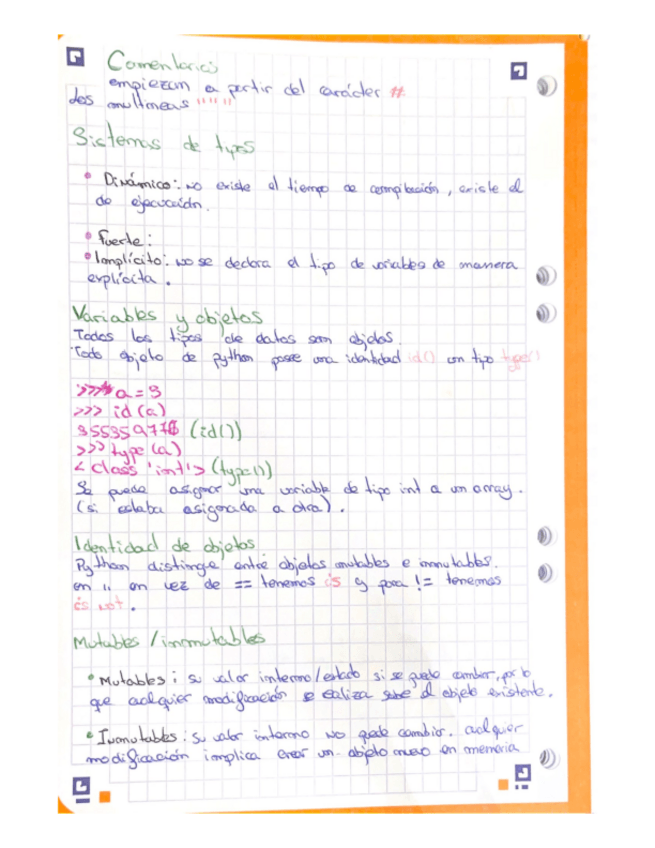 Comentarios
empiezan a partir del carácter #
los multilíneas """"
Sistemas de tipos
• Dinámico: no existe el tiempo de compilación, existe el
de ejecución.
• Fuerte:
• Implícito: no se declara el tipo de variables de manera
explícita.
Variables y objetos
Todos los tipos de datos son objetos.
Todo objeto de python posee una identidad id() un tipo type()
>>> a = 3
>>> id (a)
(id())
>>> type (a)
< class 'int'> (type())
Se puede asignar una variable de tipo int a un array.
(si estaba asignada a otra).
Identidad de objetos
Python distinge entre objetos mutables e inmutables.
en " en vez de == tenemos is y para != tenemos
is not.
Mutables / inmutables
• Mutables: su valor interno/estado si se puede cambiar, por lo
que cualquier modificación se realiza sobre el objeto existente.
• Inmutables: su valor interno no puede cambiar. cualquier
modificación implica crear un objeto nuevo en memoria